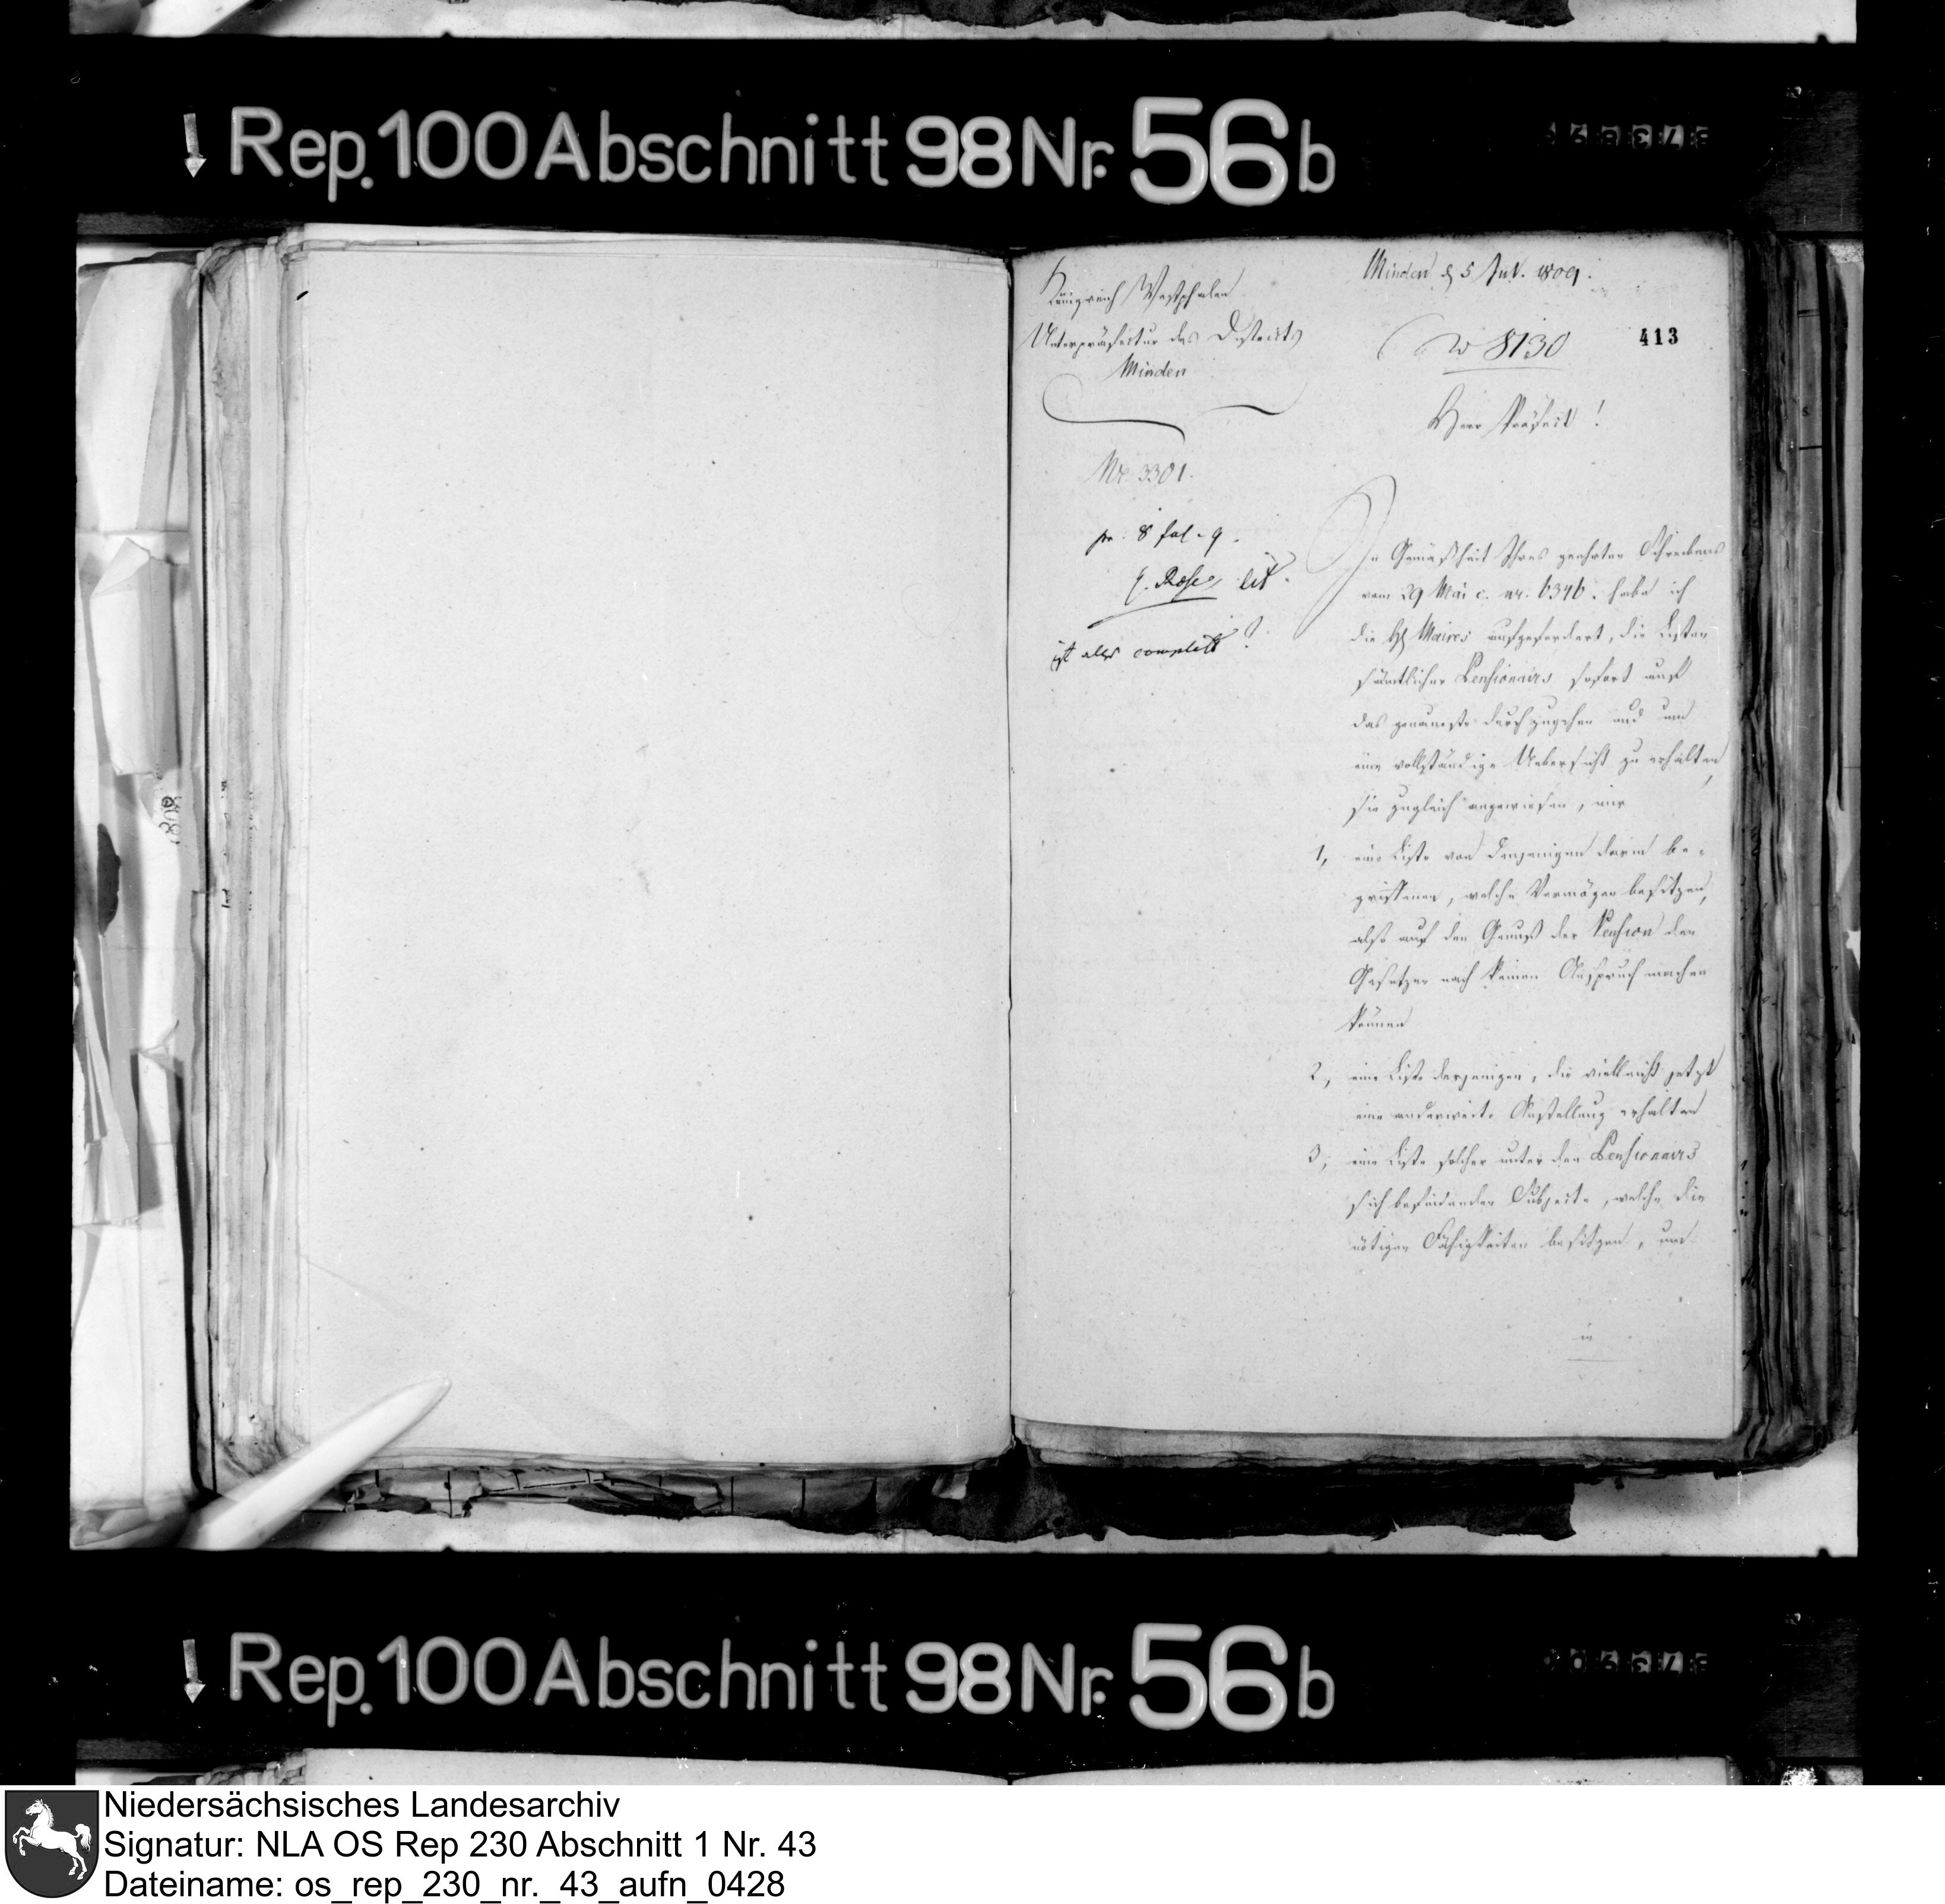 Rep. 100 Abschnitt 98 Nr. 56 b
Königreich Westphalen
Unterpräfectur des Districts
Minden
Nr. 3301.
pr. 8 Jul. 9.
ist alles complett?
Minden d 5 Jul. 1809.
8130
413
Herr Präfect!
In Gemäßheit Ihres geehrten Schreibens
vom 29 Mai c. nr. 6346. habe ich
die HH Maires aufgefordert, die Listen
sämtlicher Pensionairs sofort auf
das genaueste durchzugehen und um
eine vollständige Uebersicht zu erhalten,
sie zugleich angewiesen, mir
1, eine Liste von denjenigen darin be-
griffenen, welche Vermögen besitzen,
also auf den Genuß der Pension den
Gesetzen nach keinen Anspruch machen
können
2, eine Liste derjenigen, die vielleicht jetzt
eine anderweite Anstellung erhalten
3, eine Liste solcher unter den Pensionairs
sich befindenden Subjecte, welche die
nötigen Fähigkeiten besitzen, um
in
Rep. 100 Abschnitt 98 Nr. 56 b
Niedersächsisches Landesarchiv
Signatur: NLA OS Rep 230 Abschnitt 1 Nr. 43
Dateiname: os_rep_230_nr._43_aufn_0428